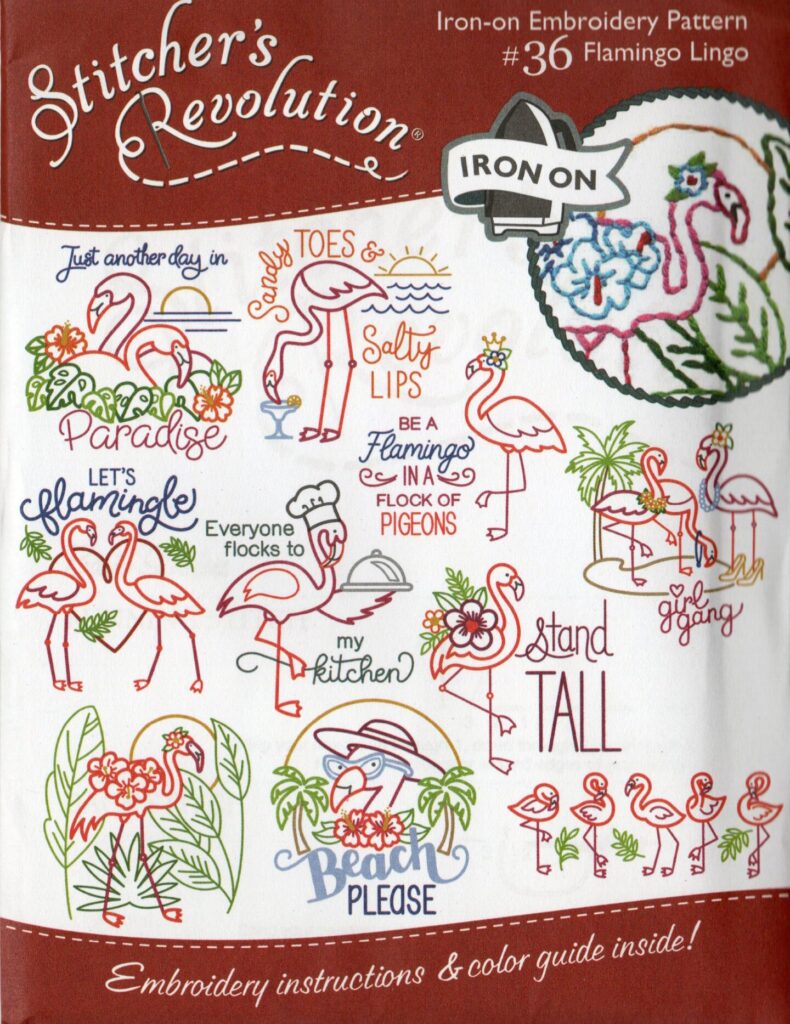 Stitcher's
Revolution®
Iron-on Embroidery Pattern
#36 Flamingo Lingo
IRON ON
Just another day in
Paradise
Sandy TOES &
Salty
LIPS
BE A
Flamingo
IN A
FLOCK OF
PIGEONS
LET'S
flamingle
Everyone
flocks to
my
kitchen
girl
gang
Stand
TALL
Beach
PLEASE
Embroidery instructions & color guide inside!